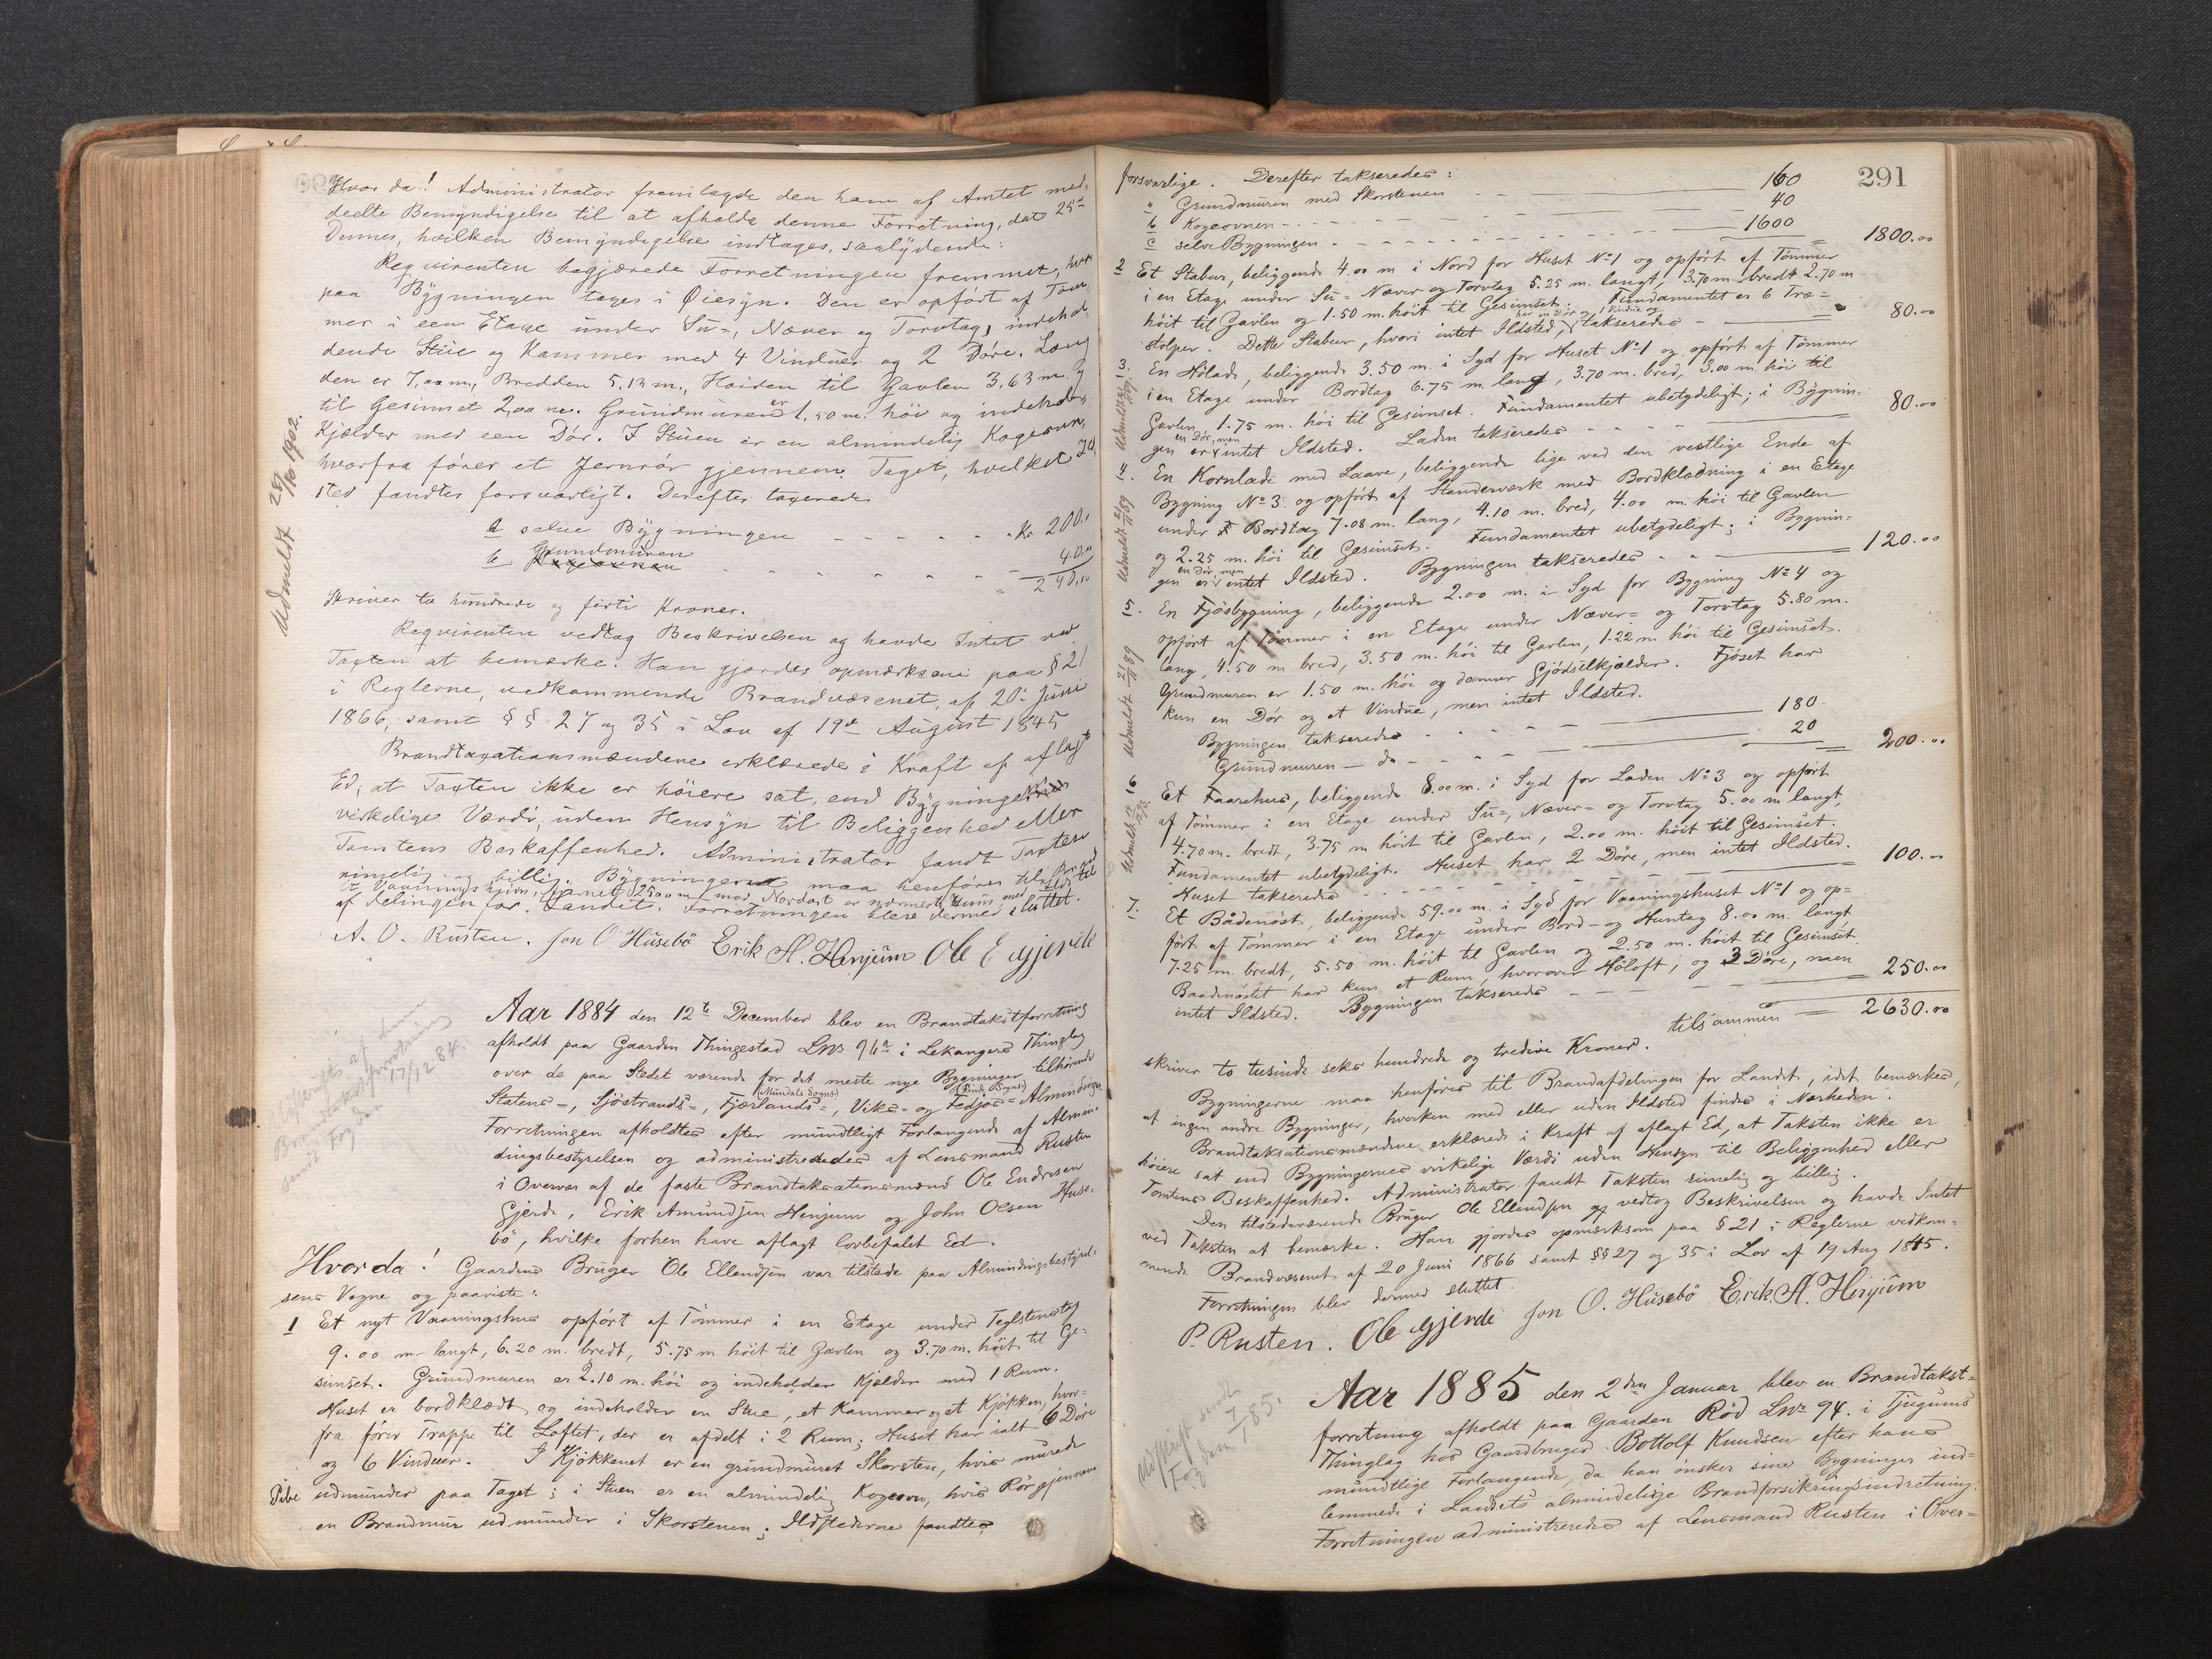 Hvor da! Administrator fremlagde den ham af Amtet med-
deelte Bemyndigelse til at afholde denne Forretning, dat 25de
Dennes, hvilken Bemyndigelse indtages, saalydende:
Requirenten begjærede Forretningen fremmet, hvor
paa Bygningen toges i Øiesyn. Den er opført af Tøm
mer i een Etage under Su-, Næver og Torvtag, indehol
dende Stue og Kammer med 4 Vinduer og 2 Døre. Læng
den er 7,00 m., Bredden 5.13 m., Høiden til Gavlen 3.63 m. og
til Gesimset 2,00 m. Grundmuren er 1.50 m. høi og indeholder
Kjælder med een Dør. I Stuen er en almindelig Kogeovn,
hvorfra fører et Jernrør gjennem Taget, hvilket Ild
sted fandtes forsvarligt. Derefter taxeredes
a selve Bygningen - - - - - Kr 200.
b Grundmuren - - - - - - - 40.00
240.00
Skriver to hundrede og førti Kroner.
Requirenten vedtog Beskrivelsen og havde Intet ved
Taxten at bemærke. Han gjordes opmærksom paa § 21
i Reglerne, vedkommende Brandvæsenet, af 20de Juni
1866, samt §§ 27 og 35 i Lov af 19de August 1845
Brandtaxationsmændene erklærede i Kraft af aflagt
Ed, at Taxten ikke er høiere sat, end Bygningens
virkelige Værdi, uden Hensyn til Beliggenhed eller
Tomtens Beskaffenhed. Administrator fandt Taxten
rimelig og billig. Bygningen maa henføres til Brand
Et Vaaningshuus, fjernet 25.00 m mod Nordost er nærmeste Huus med Ildsted
afdelingen for Landet. Forretningen blev dermed sluttet.
A. O. Rusten. Jon O Húsebö Erik A. Henjum Ole E Gjerde
Udmeldt 28/10 1902.
Aar 1884 den 12te December blev en Brandtakstforretning
afholdt paa Gaarden Thingestad LNr 96a i Lekangers Thinglag
over de paa Stedet værende for det meste nye Bygninger tilhørende
(Mundals Sogns)
Statens-, Sjøstrands-, Fjærlands-, Viks- og Fedjos- Almindinger.
Forretningen afholdtes efter mundtligt Forlangende af Almin-
dingsbestyrelsen og administreredes af Lensmand Rusten
i Overvær af de faste Brandtaksationsmænd Ole Endresen
Gjerde, Erik Amundsen Henjum og John Olsen Huse-
bø, hvilke forhen have aflagt lovbefalet Ed.
Hvor da! Gaardens Bruger Ole Ellendsen var tilstede paa Almindingsbestyrel-
sens Vegne og paaviste:
1 Et nyt Vaaningshus opført af Tømmer i en Etage under Teglstenstag
9.00 m langt, 6.20 m. bredt, 5.75 m høit til Gavlen og 3.70 m. høit til Ge-
simset. Grundmuren er 2.10 m. høi og indeholder Kjælder med 1 Rum.
Huset er bordklædt og indeholder en Stue, et Kammer og et Kjøkken, hvor-
fra fører Trappe til Loftet, der er afdelt i 2 Rum; Huset har ialt 6 Døre
og 6 Vinduer. I Kjøkkenet er en grundmuret Skorsten, hvis murede
Pibe udmunder paa Taget; i Stuen er en almindelig Kogeovn, hvis Rør gjennem
en Brandmur udmunder i Skorstenen; Ildstederne fandtes
291
forsvarlige. Derefter takseredes:
a Grundmuren med Skorstenen - - 160
b Kogeovnen - - - 40
c selve Bygningen - - - 1600 = 1800.00
2 Et Stabur, beliggende 4.00 m i Nord for Huset No 1 og opført af Tømmer
i en Etage under Su- Næver og Torvtag 5.25 m. langt, 3.70 m bredt 2.70 m
høit til Gavlen og 1.50 m. høit til Gesimset. Fundamentet er 6 Træ-
har en Dør og 1 Vindue og
stolper. Dette Stabur, hvori intet Ildsted, takseredes - 80.00
3. En Hølade, beliggende 3.50 m. i Syd for Huset No 1 og opført af Tømmer
i en Etage under Bordtag 6.75 m. lang, 3.70 m. bred, 3.00 m. høi til
Gavlen, 1.75 m. høi til Gesimset. Fundamentet ubetydeligt; i Bygnin-
en Dør, men
gen er intet Ildsted. Laden takseredes - - - 80.00
4. En Kornlade med Laave, beliggende lige ved den vestlige Ende af
Bygning No 3 og opført af Standerværk med Bordklædning i en Etage
under Bordtag 7.08 m. lang, 4.10 m. bred, 4.00 m. høi til Gavlen
og 2.25 m. høi til Gesimset. Fundamentet ubetydeligt; i Bygnin-
en Dør, men
gen er intet Ildsted. Bygningen takseredes - - 120.00
5. En Fjøsbygning, beliggende 2.00 m. i Syd for Bygning No 4 og
opført af Tømmer i en Etage under Næver- og Torvtag 5.80 m.
lang, 4.50 m bred, 3.50 m. høi til Gavlen, 1.22 m høi til Gesimset.
Grundmuren er 1.50 m. høi og danner Gjødselkjælder. Fjøset har
kun en Dør og et Vindue, men intet Ildsted.
Bygningen takseredes - - - 180
Grundmuren - do - - - 20 = 200.00
6 Et Faarehus, beliggende 8.00 m. i Syd for Laden No 3 og opført
af Tømmer i en Etage under Su-, Næver- og Torvtag 5.00 m langt,
4.70 m. bredt, 3.75 m høit til Gavlen, 2.00 m. høit til Gesimset.
Fundamentet ubetydeligt. Huset har 2 Døre, men intet Ildsted.
Huset takseredes - - - 100.00
7. Et Bådenøst, beliggende 59.00 m. i Syd for Vaaningshuset No 1 og op-
ført af Tømmer i en Etage under Bord- og Huntag 8.00 m. langt,
7.25 m. bredt, 5.50 m. høit til Gavlen og 2.50 m. høit til Gesimset.
Baadnøstet har kun et Rum, hvorover Høloft; og 3 Døre, men
intet Ildsted. Bygningen takseredes - - - 250.00
tilsammen = 2630.00
skriver to tusinde seks hundrede og tredive Kroner.
Bygningerne maa henføres til Brandafdelingen for Landet, idet bemærkes,
at ingen andre Bygninger, hverken med eller uden Ildsted findes i Nærheden.
Brandtaksationsmændene erklærede i Kraft af aflagt Ed, at Taksten ikke er
høiere sat end Bygningernes virkelige Værdi uden Hensyn til Beliggenhed eller
Tomtens Beskaffenhed. Administrator fandt Taksten rimelig og billig.
Den tilstedeværende Bruger Ole Ellendsen vedtog Beskrivelsen og havde Intet
ved Taksten at bemærke. Han gjordes opmærksom paa § 21 i Reglerne vedkom-
mende Brandvæsenet af 20 Juni 1866 samt §§ 27 og 35 i Lov af 19 Aug 1845.
Forretningen blev dermed sluttet.
P. Rusten. Ole Gjerde Jon O. Húsebö Erik A. Henjum
Aar 1885 den 2den Januar blev en Brandtakst-
forretning afholdt paa Gaarden Rød LNr 94. i Tjugums
Thinglag hos Gaardbruger Bottolf Knudsen efter hans
mundtlige Forlangende, da han ønsker sine Bygninger ind-
lemmede i Landets almindelige Brandforsikringsindretning.
Forretningen administreredes af Lensmand Rusten i Over-
Udskrift sendt
Fogden 7/1 85.